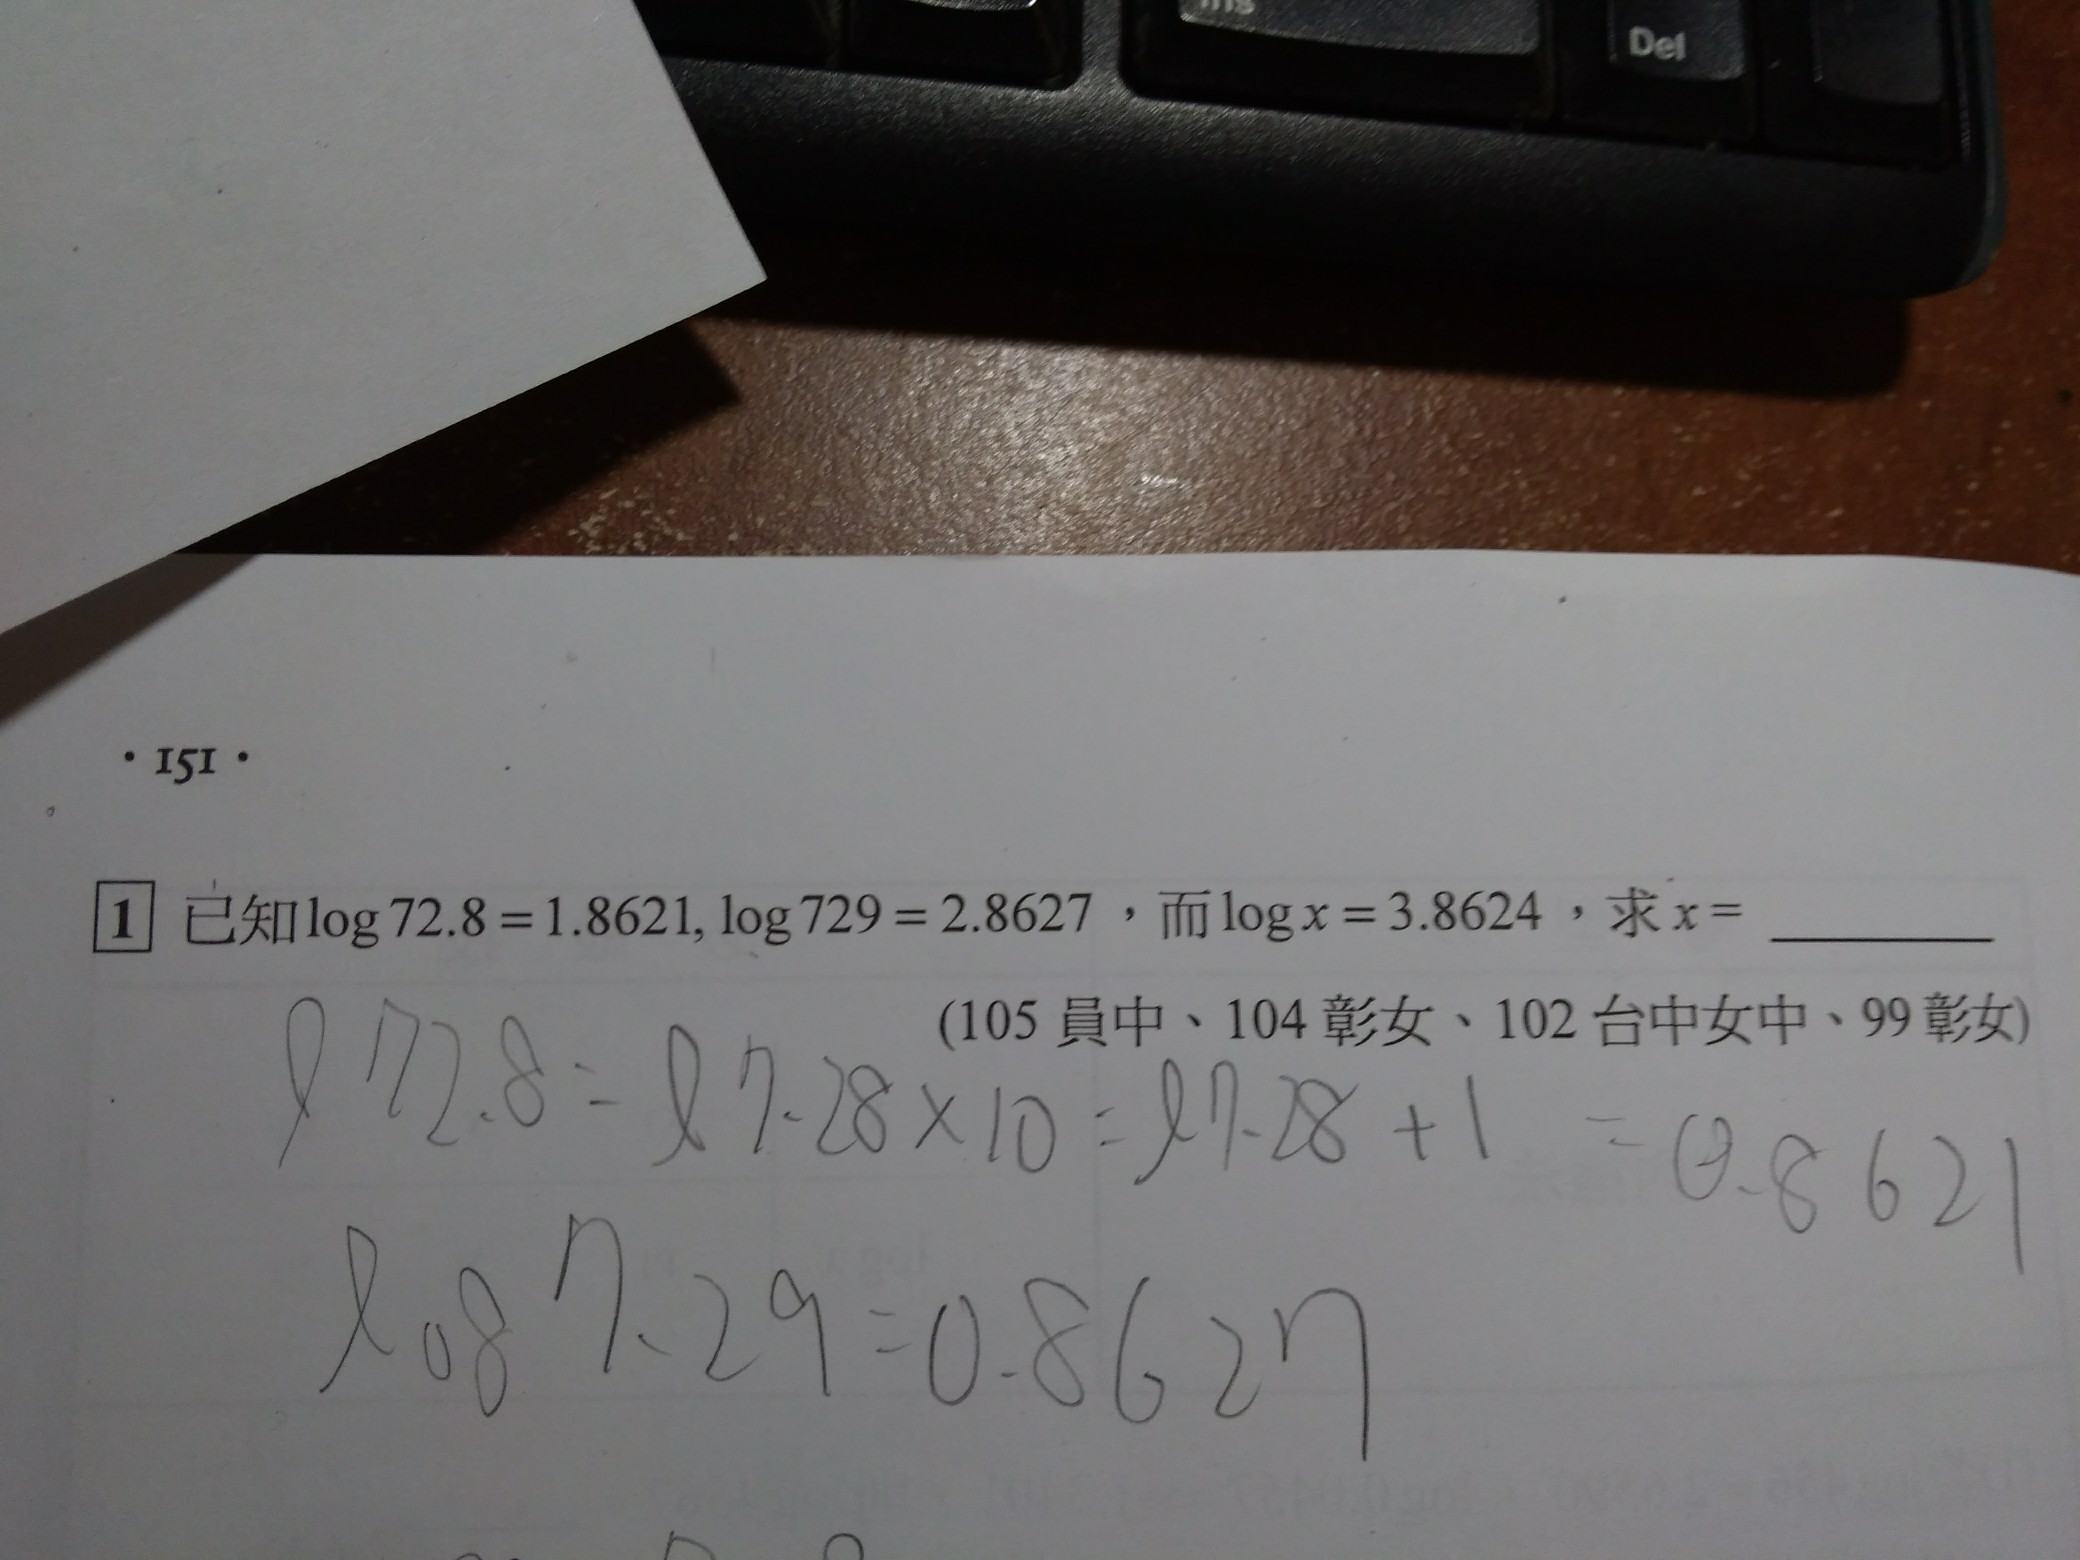 Ins
Del
· 151 ·
1 已知 log 72.8 = 1.8621, log 729 = 2.8627，而 log x = 3.8624，求 x = ______
(105 員中、104 彰女、102 台中女中、99 彰女)
l 72.8 = l 7.28 × 10 = l 7.28 + 1 = 0.8621
log 7.29 = 0.8627